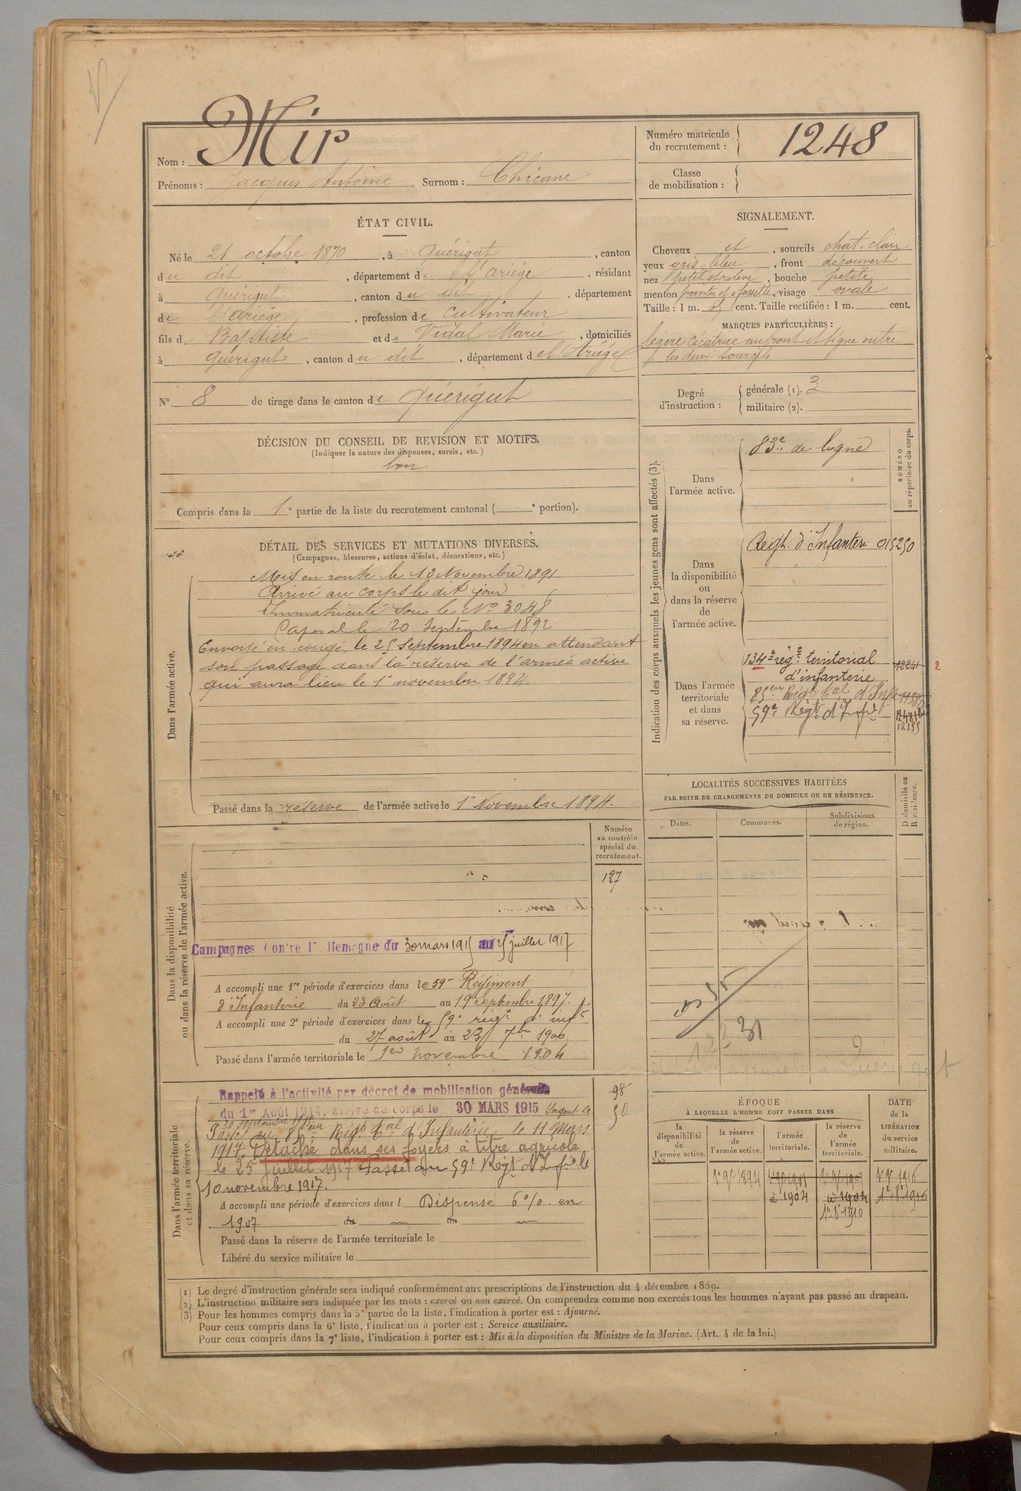 Nom : Mir
Prénoms : Jacques Antoine Surnom : Chicane
Numéro matricule du recrutement : 1248
Classe de mobilisation :
ÉTAT CIVIL.
Né le 21 octobre 1870, à Quérigut, canton
du dit, département de l'Ariège, résidant
à Quérigut, canton du dit, département
de l'Ariège, profession de Cultivateur
fils de Baptiste et de Vidal Marie, domiciliés
à Quérigut, canton du dit, département de l'Ariège
N° 8 de tirage dans le canton de Quérigut
SIGNALEMENT.
Cheveux et, sourcils chat. clair
yeux gris bleu, front découvert
nez petit et relevé, bouche petite
menton pointu et à fossette, visage ovale
Taille : 1 m. cent. Taille rectifiée : 1 m. cent.
MARQUES PARTICULIÈRES :
Légère cicatrice au front et signe entre
les deux sourcils
Degré d'instruction :
générale (1). 3
militaire (2).
DÉCISION DU CONSEIL DE REVISION ET MOTIFS.
(Indiquer la nature des dispenses, sursis, etc.)
bon
Compris dans la 1e partie de la liste du recrutement cantonal ( e portion).
DÉTAIL DES SERVICES ET MUTATIONS DIVERSES.
(Campagnes, blessures, actions d'éclat, décorations, etc.)
Dans l'armée active.
Mis en route le 13 Novembre 1891
Arrivé au corps le dit jour
Immatriculé sous le No 3048
Caporal le 20 Septembre 1892
Envoyé en congé, le 25 Septembre 1894 en attendant
son passage dans la réserve de l'armée active
qui aura lieu le 1er novembre 1894.
Passé dans la réserve de l'armée active le 1er Novembre 1894.
Indication des corps auxquels les jeunes gens sont affectés (3).
NUMÉRO au répertoire du corps.
Dans l'armée active.
83e de ligne
Dans la disponibilité ou dans la réserve de l'armée active.
Regt. d'Infanterie 015250
Dans l'armée territoriale et dans sa réserve.
134e régt territorial
d'infanterie
2
59e Régt d'Infie
LOCALITÉS SUCCESSIVES HABITÉES
PAR SUITE DE CHANGEMENTS DE DOMICILE OU DE RÉSIDENCE.
Dates.
Communes.
Subdivisions de région.
D domicile ou R résidence.
Dans la disponibilité ou dans la réserve de l'armée active.
Numéro au contrôle spécial du recrutement.
127
Campagnes Contre l'Allemagne du 30 mars 1915 au 25 juillet 1917
A accompli une 1re période d'exercices dans le 59e Régiment
d'Infanterie du 23 Août au 19 septembre 1897.
A accompli une 2e période d'exercices dans le 59e régt d'inft
du 27 août au 23 7bre 1900
Passé dans l'armée territoriale le 1er novembre 1904
31
Dans l'armée territoriale et dans sa réserve.
Rappelé à l'activité par décret de mobilisation générale
du 1er Août 1914, arrivé au corps le 30 MARS 1915 Sergent le
Passé au 85e Régt tal d'Infanterie le 11 Mars
1917. Détaché dans ses foyers à titre agricole
le 25 juillet 1917 Passé au 59e Régt d'Infie le
10 novembre 1917.
A accompli une période d'exercices dans l Dispensé 6% en
1907
Passé dans la réserve de l'armée territoriale le
Libéré du service militaire le
98
50
ÉPOQUE
À LAQUELLE L'HOMME DOIT PASSER DANS
la disponibilité de l'armée active.
la réserve de l'armée active.
l'armée territoriale.
la réserve de l'armée territoriale.
DATE de la LIBÉRATION du service militaire.
1er 9bre 1894
1904
1er 8bre 1910
1er 9bre 1916
1er 8bre 1916
(1) Le degré d'instruction générale sera indiqué conformément aux prescriptions de l'instruction du 4 décembre 1889.
(2) L'instruction militaire sera indiquée par les mots : exercé ou non exercé. On comprendra comme non exercés tous les hommes n'ayant pas passé au drapeau.
(3) Pour les hommes compris dans la 5e partie de la liste, l'indication à porter est : Ajourné.
Pour ceux compris dans la 6e liste, l'indication à porter est : Service auxiliaire.
Pour ceux compris dans la 7e liste, l'indication à porter est : Mis à la disposition du Ministre de la Marine. (Art. 4 de la loi.)